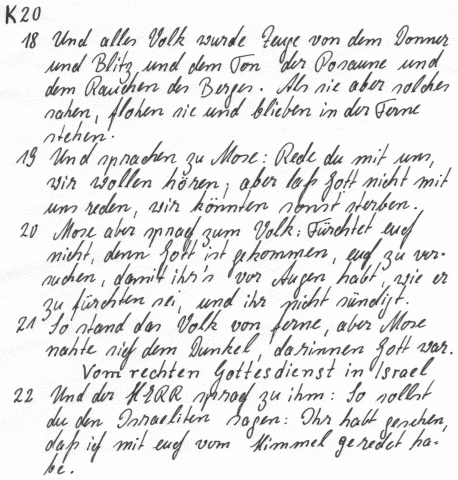 K20
18 Und alles Volk wurde Zeuge von dem Donner
und Blitz und dem Ton der Posaune und
dem Rauchen des Berges. Als sie aber solches
sahen, flohen sie und blieben in der Ferne
stehen.
19 Und sprachen zu Mose: Rede du mit uns,
wir wollen hören; aber laß Gott nicht mit
uns reden, wir könnten sonst sterben.
20 Mose aber sprach zum Volk: Fürchtet euch
nicht, denn Gott ist gekommen, euch zu ver-
suchen, damit ihr's vor Augen habt, wie er
zu fürchten sei, und ihr nicht sündigt.
21 So stand das Volk von ferne, aber Mose
nahte sich dem Dunkel, darinnen Gott war.
Vom rechten Gottesdienst in Israel
22 Und der HERR sprach zu ihm: So sollst
du den Israeliten sagen: Ihr habt gesehen,
daß ich mit euch vom Himmel geredet ha-
be.